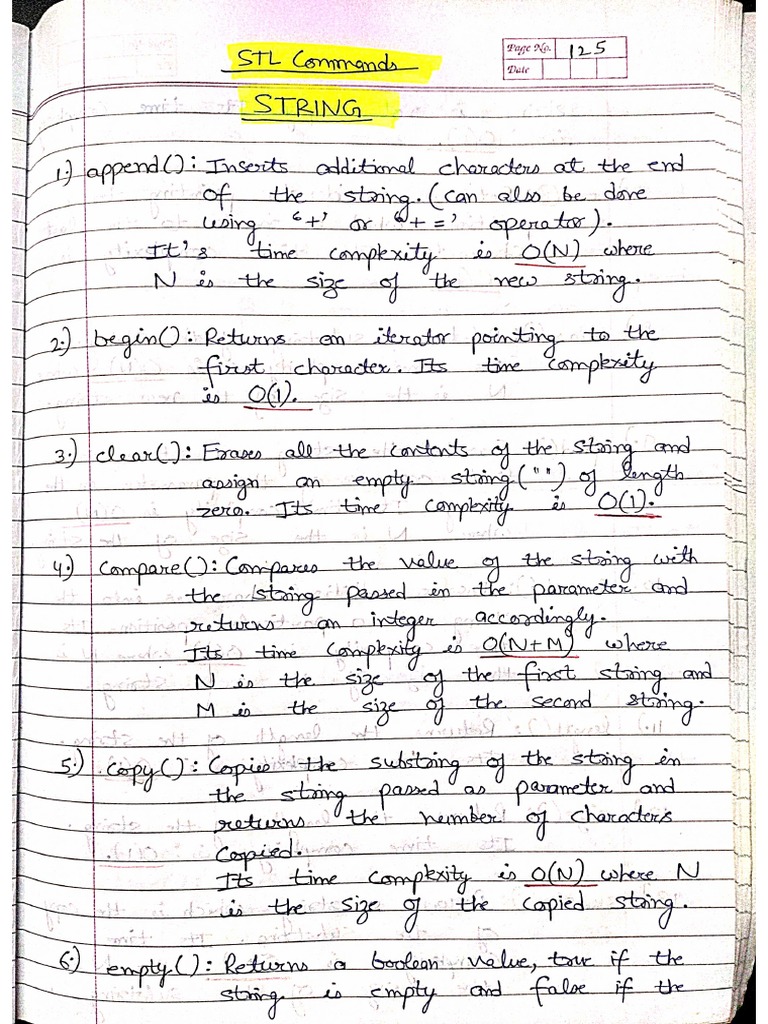 STL Commands
Page No. 125
Date
STRING
1.) append(): Inserts additional characters at the end
of the string. (can also be done
using '+' or '+=' operator).
It's time complexity is O(N) where
N is the size of the new string.
2.) begin(): Returns an iterator pointing to the
first character. Its time complexity
is O(1).
3.) clear(): Erases all the contents of the string and
assign an empty string("") of length
zero. Its time complexity is O(1).
4.) compare(): Compares the value of the string with
the string passed in the parameter and
returns an integer accordingly.
Its time complexity is O(N+M) where
N is the size of the first string and
M is the size of the second string.
5.) copy(): Copies the substring of the string in
the string passed as parameter and
returns the number of characters
copied.
Its time complexity is O(N) where N
is the size of the copied string.
6.) empty(): Returns a boolean value, true if the
string is empty and false if the